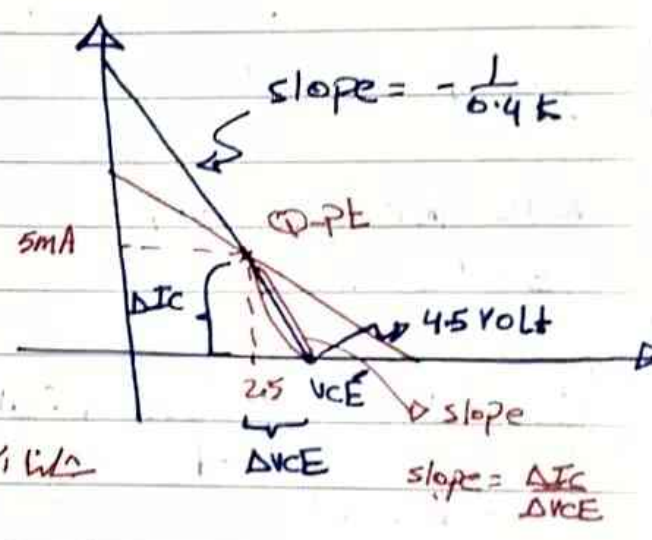 slope = - 1/0.4 k
Q-pt
5mA
ΔIc
4.5 Volt
2.5 VCE'
slope
ΔVCE
slope = ΔIc/ΔVCE